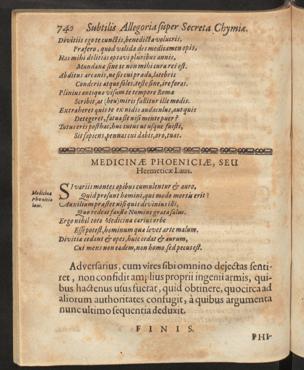 740 Subtilis Allegoria super Secreta Chymiæ.
Divitiis ego te cunctis, benedicta volucris,
Præfero, quod valida des medicamen opis,
Has mihi delitias optavi pluribus annis,
Mundana sine te non mihi cura rei est.
Abditus arcanis, ne sis cui præda, latebris
Conderis atque files, teste sine, ire foras.
Plinius antiqua visum te tempore Roma
Scribit, at (heu) miris fallitur ille modis.
Extraheret quis te ex nidis audaculus, aut quis
Detegeret, fatuæ st nisi mente puer?
Totus eris posthac, huc meus ut usque fuisti,
Sis sapienti, pennas cui dabit, aro, tuas.
MEDICINÆ PHOENICIÆ, SEU
Hermeticæ Laus.
Medicinæ
phœniciæ
laus.
Si variis montes opibus cumulentur & auro,
Quid prosunt homini, quo modo mœrsi erit?
Auxilium præstet nisi quis divinitus ibi,
Quo redeat fausto Numine grata salus.
Ergo nihil toto Medicina carius orbe
Esse potest, hominum qua levet arte malum.
Divitiæ cedant & opes, huic cedat & aurum,
Cui mens non eadem, non homo, sed pecus est.
Adversarius, cum vires sibi omnino dejectas senti-
ret, non confidit amplius proprii ingenii armis, qui-
bus hactenus usus fuerat, quid obtinere, quocirca ad
aliorum authoritates confugit, à quibus argumenta
nunc ultimo sequentia deduxit.
FINIS.
PHI-